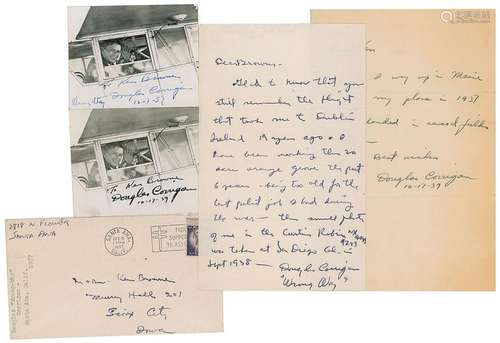 To Ken Browne
Wrong Way Douglas Corrigan
10-13-57
To Ken Browne
Douglas Corrigan
10-13-57
Dear Browns-
Glad to know that you
still remember the flight
that took me to Dublin
Ireland 19 years ago. I
have been working this 20
acre orange grove the past
6 years - being too old for the
test pilot job I had during
the war - the small photo
of me in the Curtis Robin NX9243
was taken at San Diego Cal. in
Sept 1938 -
Douglas Corrigan
Wrong Way
I was up in Maine
my plane in 1937
landed in
Best wishes
Douglas Corrigan
10-13-57
2828 N Flower
Santa Ana
SANTA ANA
CALIF.
Mr + Mrs Ken Browne
Murry Hall 201
Sioux City
Iowa
Douglas "Wrong-Way"
Corrigan -
Santa Ana, Calif.
1957